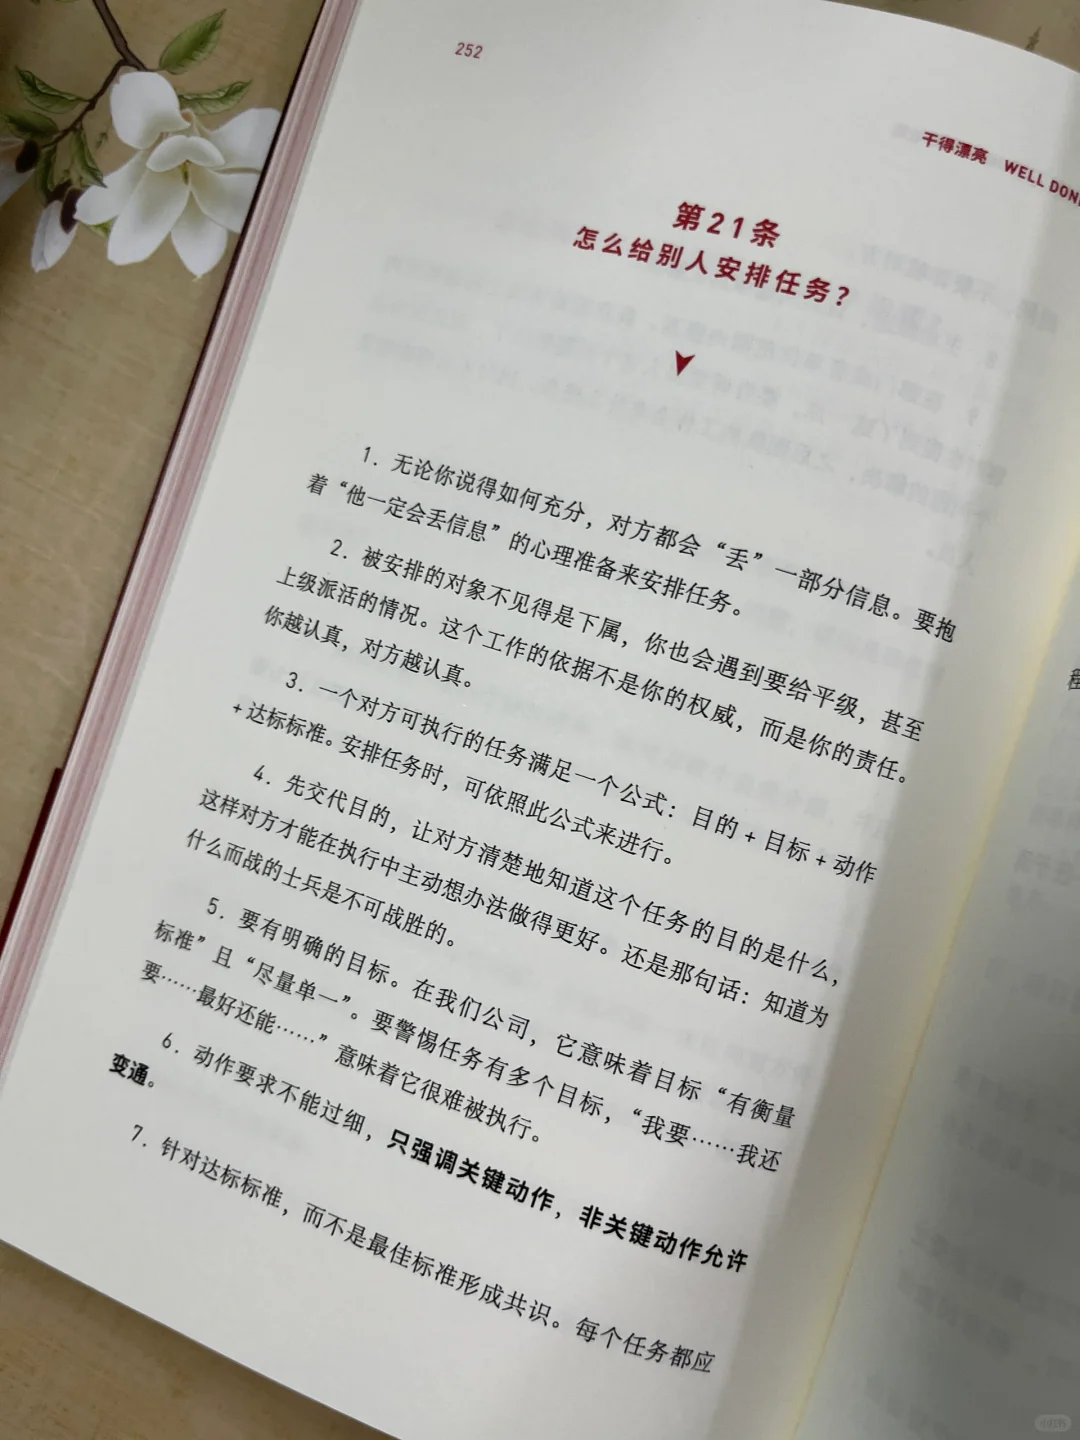 252
干得漂亮 WELL DON
第21条
怎么给别人安排任务？
1. 无论你说得如何充分，对方都会“丢”一部分信息。要抱
着“他一定会丢信息”的心理准备来安排任务。
2. 被安排的对象不见得是下属，你也会遇到要给平级，甚至
上级派活的情况。这个工作的依据不是你的权威，而是你的责任。
你越认真，对方越认真。
3. 一个对方可执行的任务满足一个公式：目的 + 目标 + 动作
+ 达标标准。安排任务时，可依照此公式来进行。
4. 先交代目的，让对方清楚地知道这个任务的目的是什么，
这样对方才能在执行中主动想办法做得更好。还是那句话：知道为
什么而战的士兵是不可战胜的。
5. 要有明确的目标。在我们公司，它意味着目标“有衡量
标准”且“尽量单一”。要警惕任务有多个目标，“我要……我还
要……最好还能……”意味着它很难被执行。
6. 动作要求不能过细，只强调关键动作，非关键动作允许
变通。
7. 针对达标标准，而不是最佳标准形成共识。每个任务都应
程